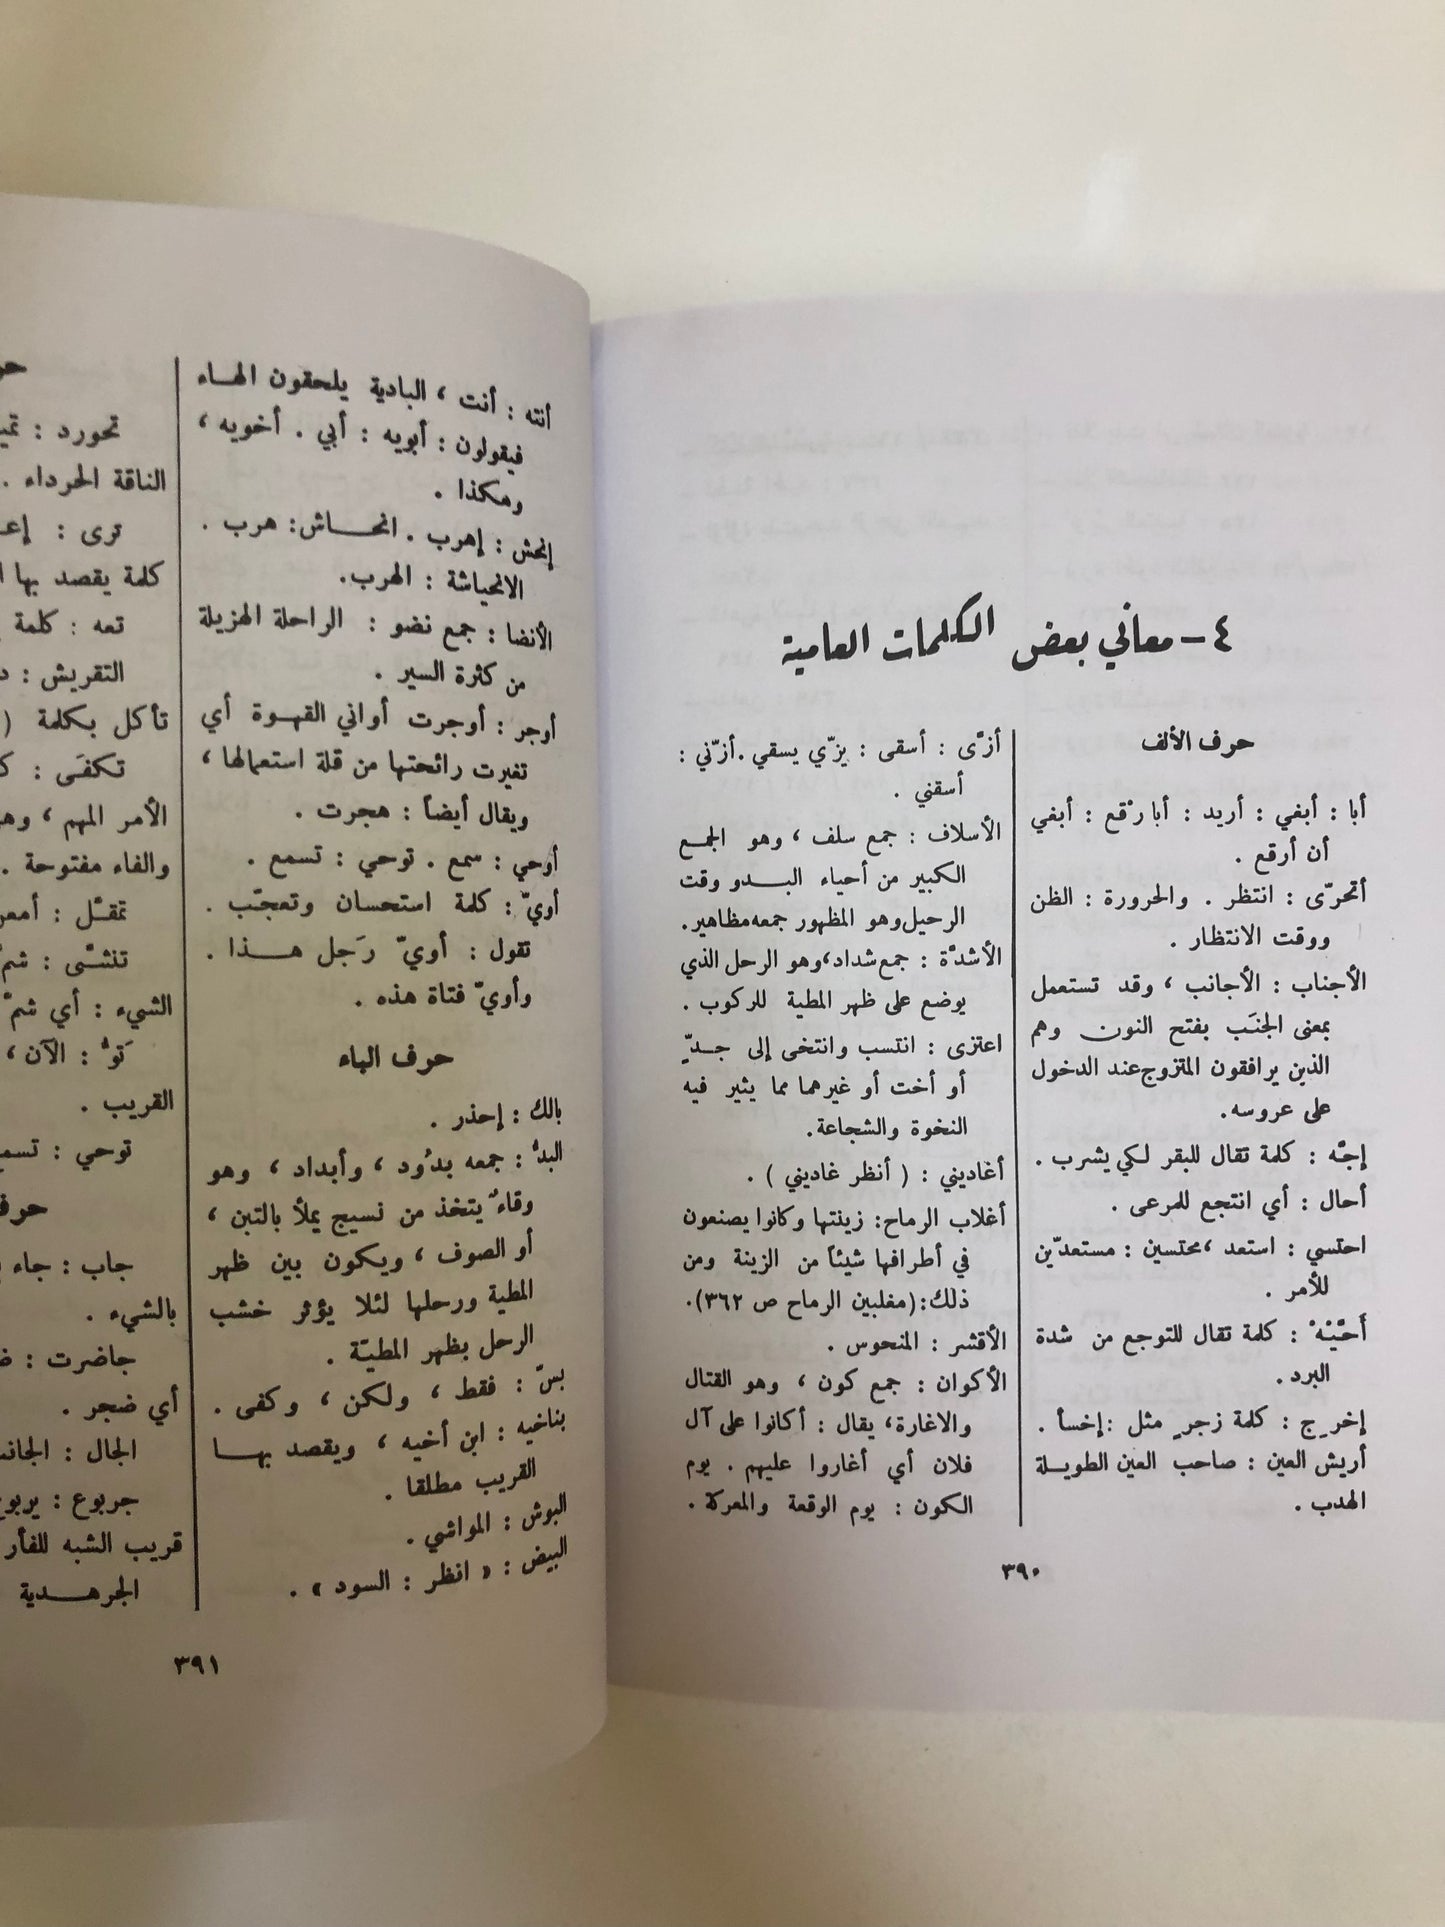 ٤ – معاني بعض الكلمات العامية
حرف الألف
أبا : أبغي : أريد : أبا رْقع : أبغي
أن أرقع .
أتحرّى : انتظر . والحرورة : الظن
ووقت الانتظار .
الأجناب : الأجانب ، وقد تستعمل
بمعنى الجنَب بفتح النون وهم
الذين يرافقون المتزوج عند الدخول
على عروسه.
إجّه : كلمة تقال للبقر لكي يشرب .
أحال : أي انتجع للمرعى .
احتسي : استعد ، محتسين : مستعدّين
للأمر .
أَحَّيْهْ : كلمة تقال للتوجع من شدة
البرد .
إخرِج : كلمة زجرٍ مثل : إخسأ .
أريش العين : صاحب العين الطويلة
الهدب .
أزّى : أسقى : يزّي يسقي . أزّني :
أسقني .
الأسلاف : جمع سلف ، وهو الجمع
الكبير من أحياء البدو وقت
الرحيل وهو المظهور جمعه مظاهير.
الأشدّة : جمع شداد، وهو الرحل الذي
يوضع على ظهر المطية للركوب .
اعتزى : انتسب وانتخى إلى جدٍّ
أو أخت أو غيرهما مما يثير فيه
النخوة والشجاعة.
أغاديني : ( أنظر غاديني ) .
أغلاب الرماح: زينتها وكانوا يصنعون
في أطرافها شيئاً من الزينة ومن
ذلك:(مغلبين الرماح ص ٣٦٢).
الأقشر : المنحوس .
الأكوان : جمع كون ، وهو القتال
والاغارة، يقال : أكانوا على آل
فلان أي أغاروا عليهم . يوم
الكون : يوم الوقعة والمعركة .
٣٩٠
أنته : أنت ، البادية يلحقون الهاء
فيقولون : أبويه : أبي . أخويه ،
وهكذا .
إنحش : إهرب . انحاش: هرب .
الانحياشة : الهرب.
الأنضا : جمع نضو : الراحلة الهزيلة
من كثرة السير .
أوجر : أوجرت أواني القهوة أي
تغيرت رائحتها من قلة استعمالها ،
ويقال أيضاً : هجرت .
أوحي : سمع . توحي : تسمع .
أويّ : كلمة استحسان وتعجّب .
تقول : أويّ رَجل هذا .
وأويّ فتاة هذه .
حرف الباء
بالك : إحذر .
البدُّ : جمعه بدُود ، وأبداد ، وهو
وقاءٌ يتخذ من نسيج يملأ بالتبن ،
أو الصوف ، ويكون بين ظهر
المطية ورحلها لئلا يؤثر خشب
الرحل بظهر المطيّة .
بسّ : فقط ، ولكن ، وكفى .
بناخيه : ابن أخيه ، ويقصد بها
القريب مطلقا .
البوش : المواشي .
البيض : « انظر : السود » .
تحورد :
الناقة الحرداء .
ترى :
كلمة يقصد بها
تعه : كلمة
التقريش :
تأكل بكلمة (
تكفَى :
الأمر المهم ،
والفاء مفتوحة .
تمقّل :
تنشّى :
الشيء : أي
تَوُّ : الآن ،
القريب .
توحي :
جاب : جاء
بالشيء .
جاضرت :
أي ضجر .
الجال :
جربوع :
قريب الشبه للفأر
الجرهدية
٣٩١